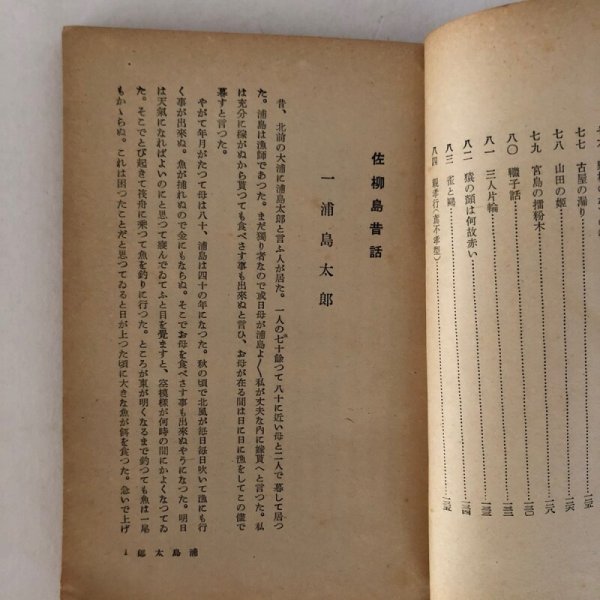 七七 古屋の漏り………一三五
七八 山田の姫………一三六
七九 宮島の擂粉木………一三八
八〇 囃子話………一三〇
八一 三人片輪………一三三
八二 猿の顔は何故赤い………一三三
八三 雀と鷗………一三四
八四 親孝行(舊不孝型)………一三五
佐柳島昔話
一 浦島太郎
昔、北前の大浦に浦島太郎と言ふ人が居た。一人の七十餘つて八十に近い母と二人で暮して居つ
た。浦島は漁師であつた。まだ獨り者なので或日母が浦島よ〳〵私が丈夫な内に嫁貰へと言つた。私
は充分に稼がぬから貰つても食べさす事も出來ぬと言ひ、お母が在る間は日に日に漁をしてこの儘で
暮すと言つた。
やがて年月がたつて母は八十、浦島は四十の年になつた。秋の頃で北風が毎日毎日吹いて漁にも行
く事が出來ぬ。魚が捕れぬので金にもならぬ。そこでお母を食べさす事も出來ぬやうになつた。明日
は天氣になればよいのにと思つて寢んでゐてふと目を覺ますと、空模樣が何時の間にかよくなつてゐ
た。そこでとび起きて筏舟に乘つて魚を釣りに行つた。ところが東が明くなるまで釣つても魚は一尾
もかゝらぬ。これは困つたことだと思つてゐると日が上つた頃に大きな魚が餌を食つた。急いで上げ
浦島太郎
1